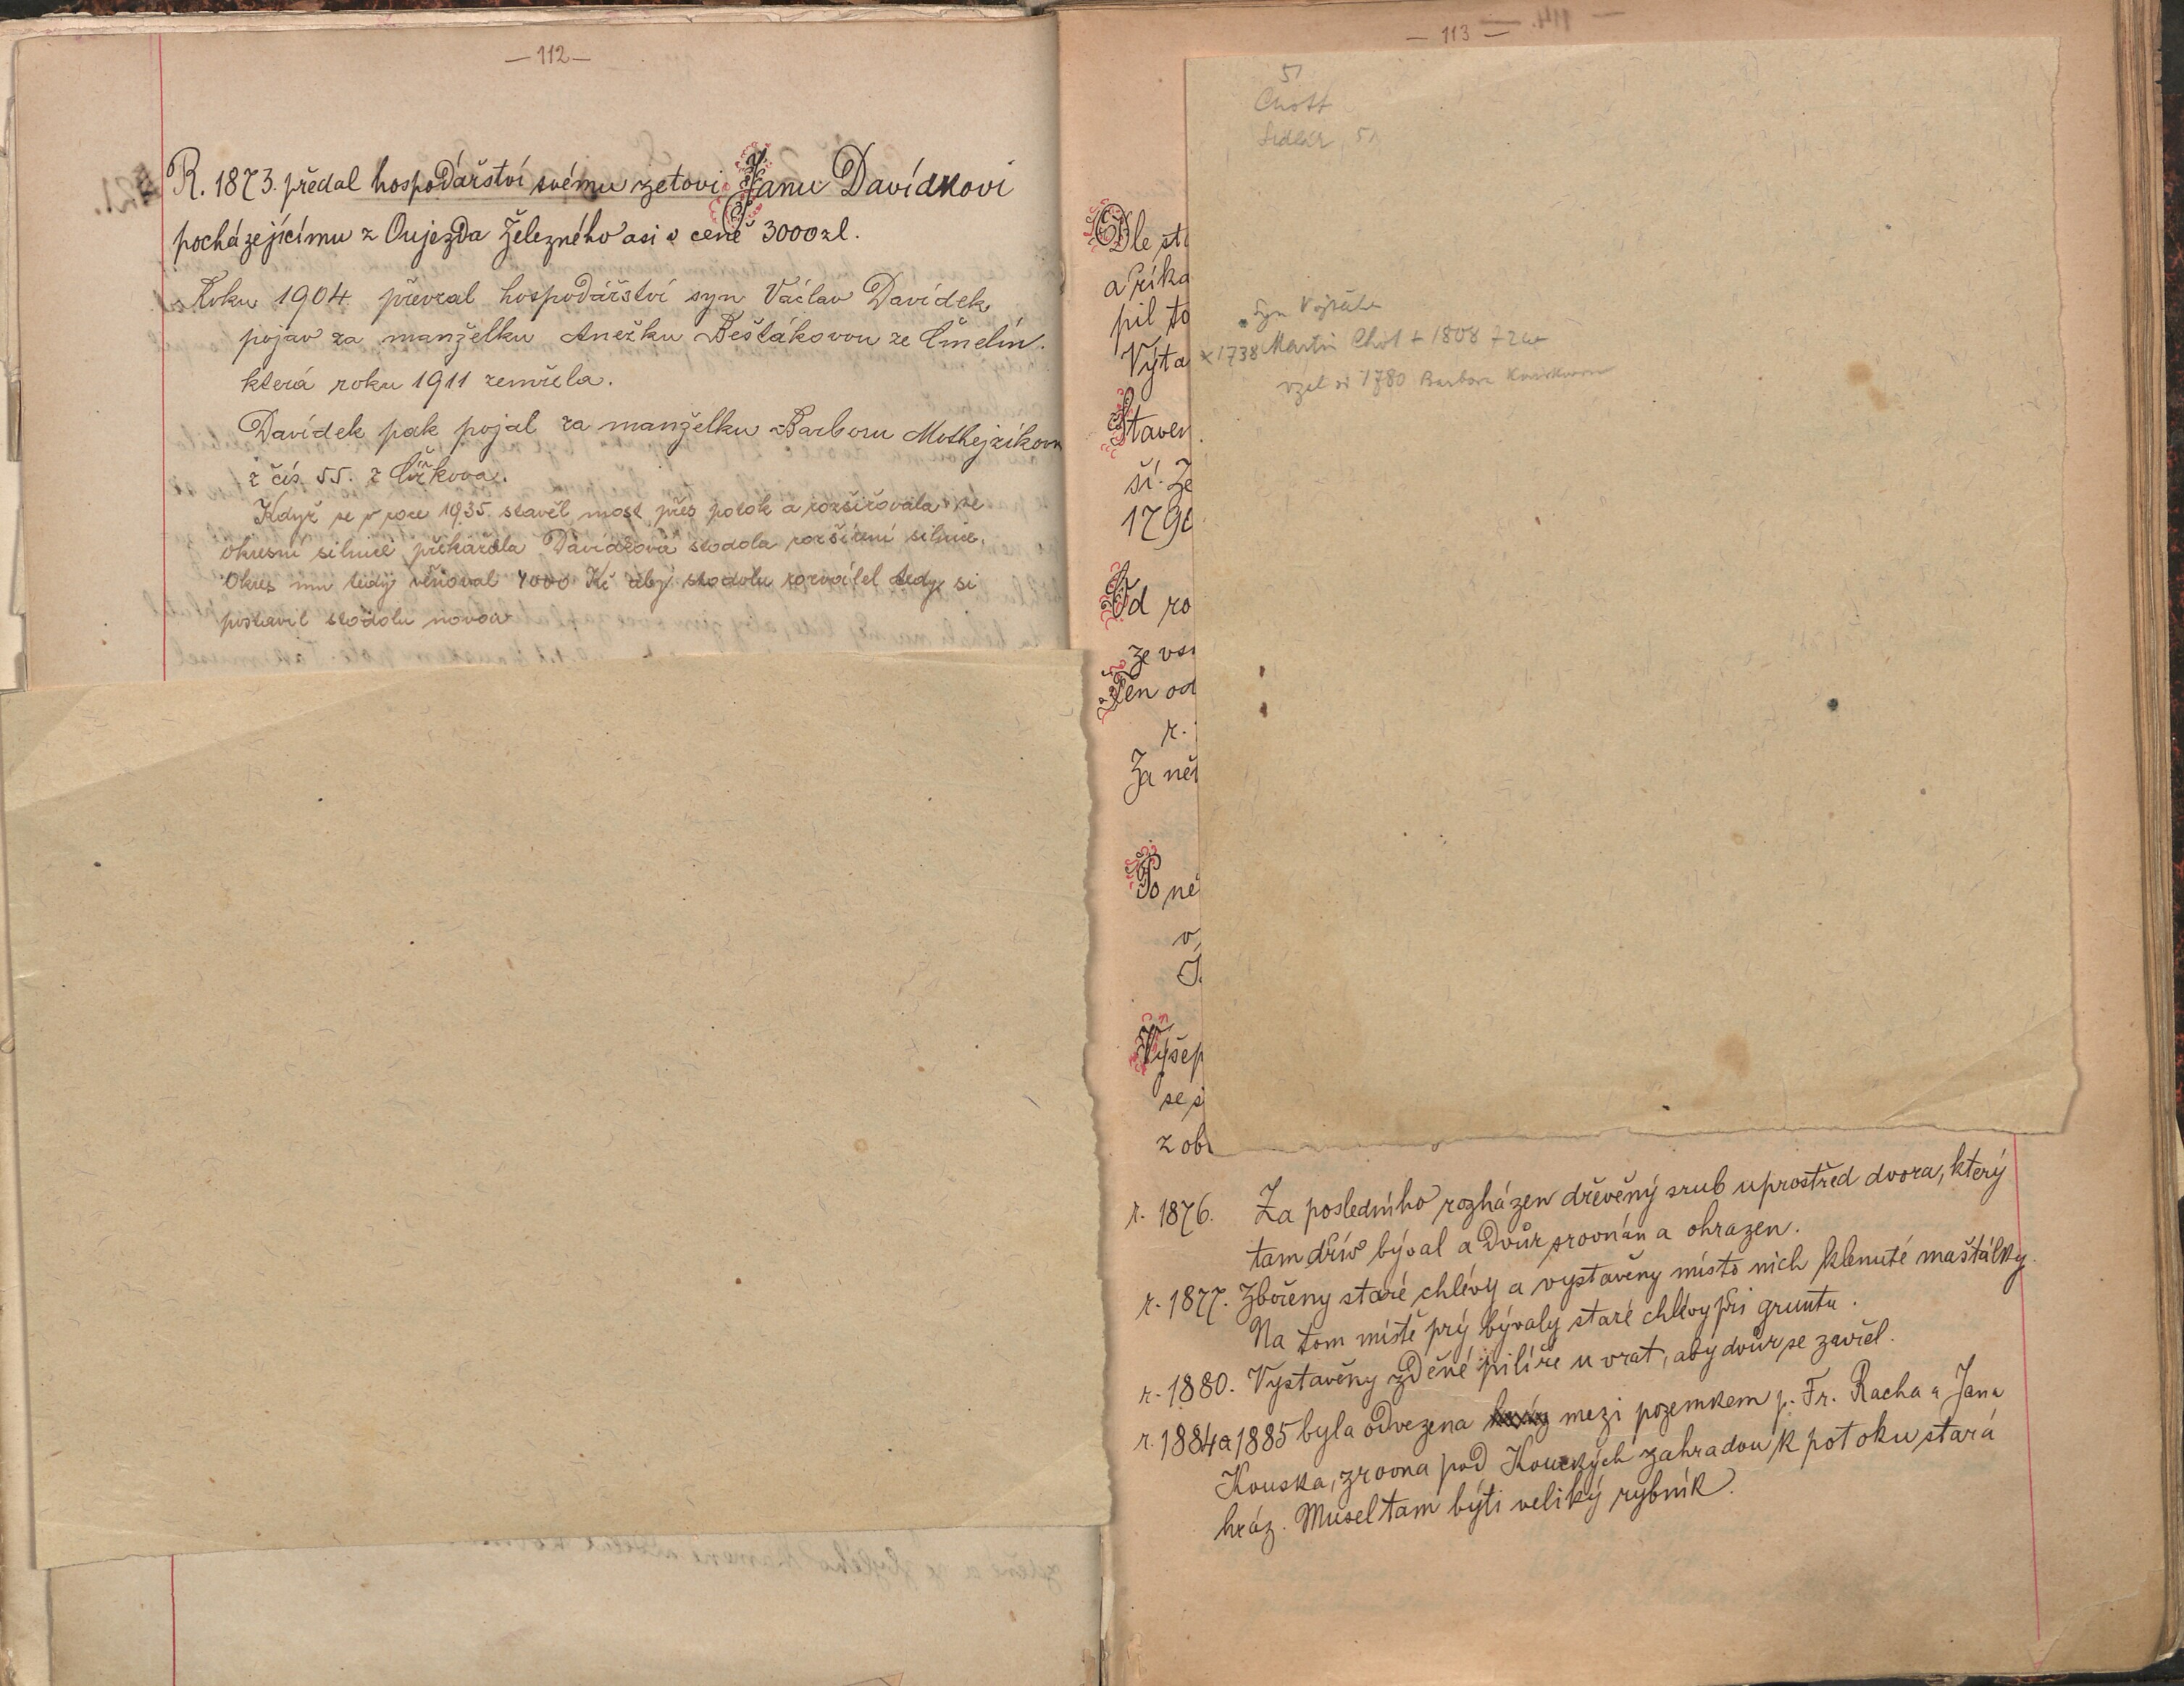 — 112 —
R. 1873. předal hospodářství svému zetovi Janu Davídkovi
pocházejícímu z Oujezda Železného asi v ceně 3000 zl.
Roku 1904 převzal hospodářství syn Václav Davídek
pojav za manželku Anežku Bešťákovou ze Čmelín.
která roku 1911 zemřela.
Davídek pak pojal za manželku Barboru Mothejzíkovou
z čís 55. z Čížkova.
Když se v roce 1935 stavěl most přes potok a rozšiřovala se
okresní silnice překážela Davídkova stodola rozšíření silnice.
Okres mu tedy věnoval 4000 Kč aby stodolu rozválel tedy si
postavil stodolu novou
— 113 —
51
Chott
Sedlár 51
Syn Vojtěcha
× 1738 Martin Chot + 1808
vzel si 1780 Barbora
Dle st
a říka
pil to
Výta
Staven
ší. Že
1790
Od ro
že vs
Jen od
r.
Za ně
Po ne
v
J
Výšep
se s
z ob
r. 1876. Za posledního rozházen dřevěný srub uprostřed dvora, který
tam dřív býval a dvůr srovnán a ohrazen.
r. 1877. Zbořeny staré chlévy a vystavěny místo nich klenuté maštálky.
Na tom místě prý bývaly staré chlévy při gruntu.
r. 1880. Vystavěny zděné pilíře u vrat, aby dvůr se zavřel.
r. 1884 a 1885 byla odvezena mezi pozemkem p. Fr. Racha a Jana
Kouska, zrovna pod Kouckých zahradou k potoku stará
hráz. Musel tam býti veliký rybník.